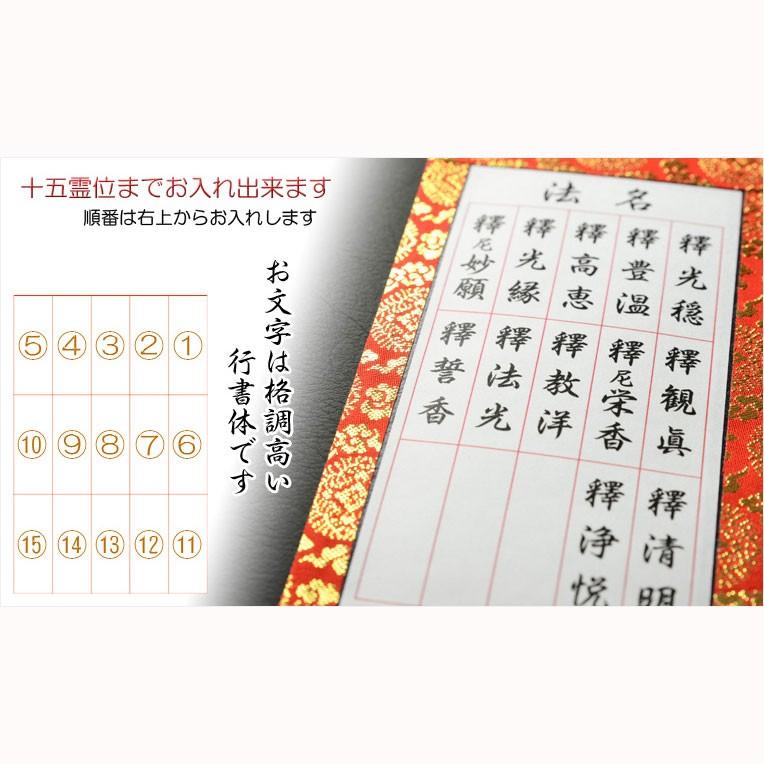 十五霊位までお入れ出来ます
順番は右上からお入れします
お文字は格調高い
行書体です
⑤ ④ ③ ② ①
⑩ ⑨ ⑧ ⑦ ⑥
⑮ ⑭ ⑬ ⑫ ⑪
法名
釋光穏
釋豊温
釋高恵
釋光縁
釋尼妙願
釋観眞
釋尼栄香
釋教洋
釋法光
釋誓香
釋清明
釋浄悦